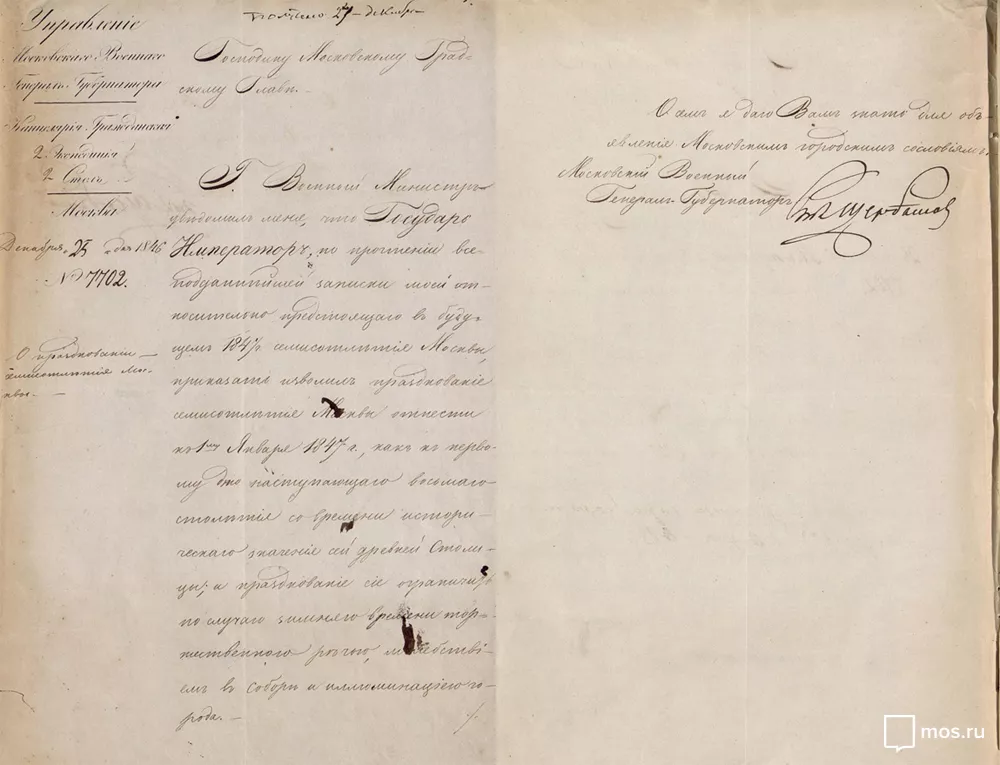 получено 27 декабря
Управленіе
Московскаго Военнаго
Генералъ Губернатора
Канцелярія Гражданская
2. Экспедиція
2. Столъ
Москва
Декабря 25 дня 1846
№ 7702.
О празднованіи
семисотлѣтія Мо-
сквы. —
Господину Московскому Град-
скому Главѣ. —
Г. Военный Министръ
увѣдомилъ меня, что Государь
Императоръ, по прочтеніи все-
подданнѣйшей записки моей от-
носительно предстоящаго въ буду-
щемъ 1847 г. семисотлѣтія Москвы,
приказать изволилъ празднованіе
семисотлѣтія Москвы отнести
къ 1му Января 1847 г., какъ къ перво-
му дню наступающаго восьмаго
столѣтія со времени истори-
ческаго значенія сей древней Столи-
цы; а празднованіе сіе ограничить
по случаю зимняго времени тор-
жественного рѣчью, молебстві-
емъ въ соборѣ и иллюминаціею го-
рода. —
О семъ я даю Вамъ знать для объ-
явленія Московскимъ городскимъ сословіямъ.
Московскій Военный
Генералъ-Губернаторъ Щербатовъ
mos.ru